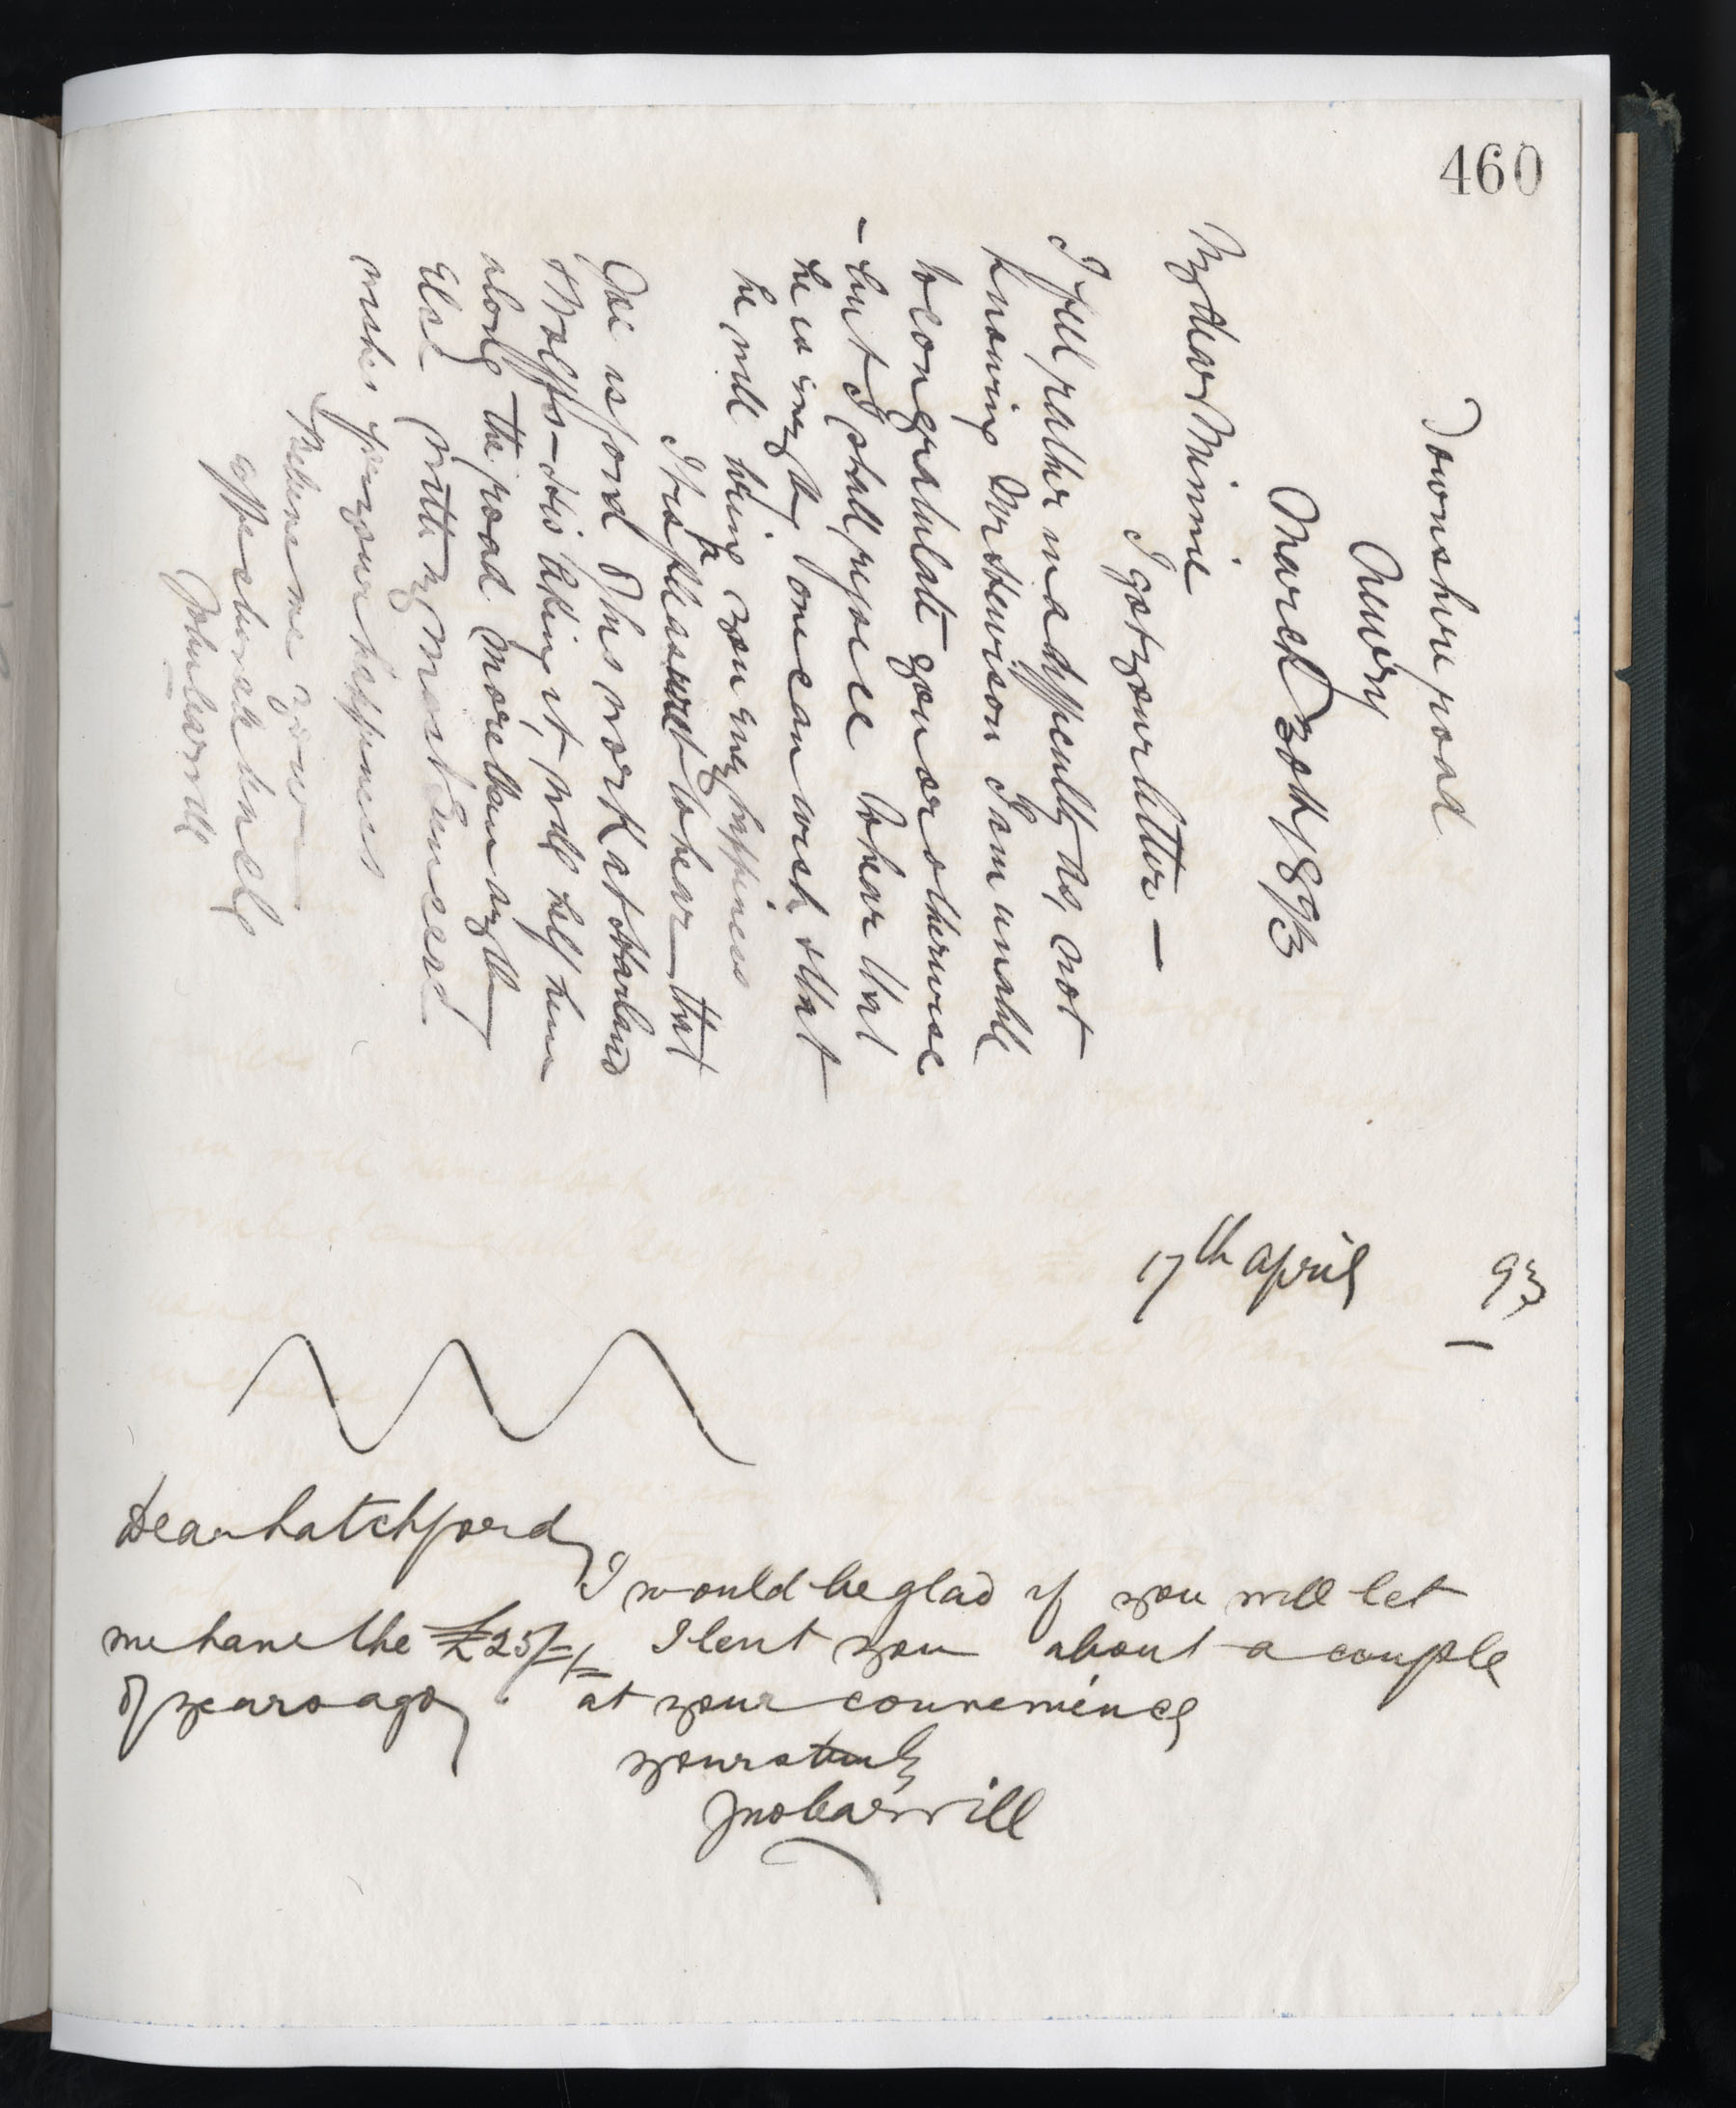 460
Downshire road
Newry
March 30th 1893
My dear Minnie
I got your letter —
I feel rather in a difficulty as, not
knowing Mr Hewison I am unable
to congratulate you or otherwise
- but I shall rejoice to hear that
he is every thing one can wish & that
he will bring you every happiness
It is pleasant to hear that
Joe is fond of his work at Harland
& Wolffs - His liking it, will help him
along the road more than anything
else With my most sincere
wishes for your happiness
Believe me your
affectionate uncle
John Carvill
17th April 93
Dear Latchford,
I would be glad if you will let
me have the £25/-/- I lent you about a couple
of years ago, at your convenience
yours truly
Jno Carvill